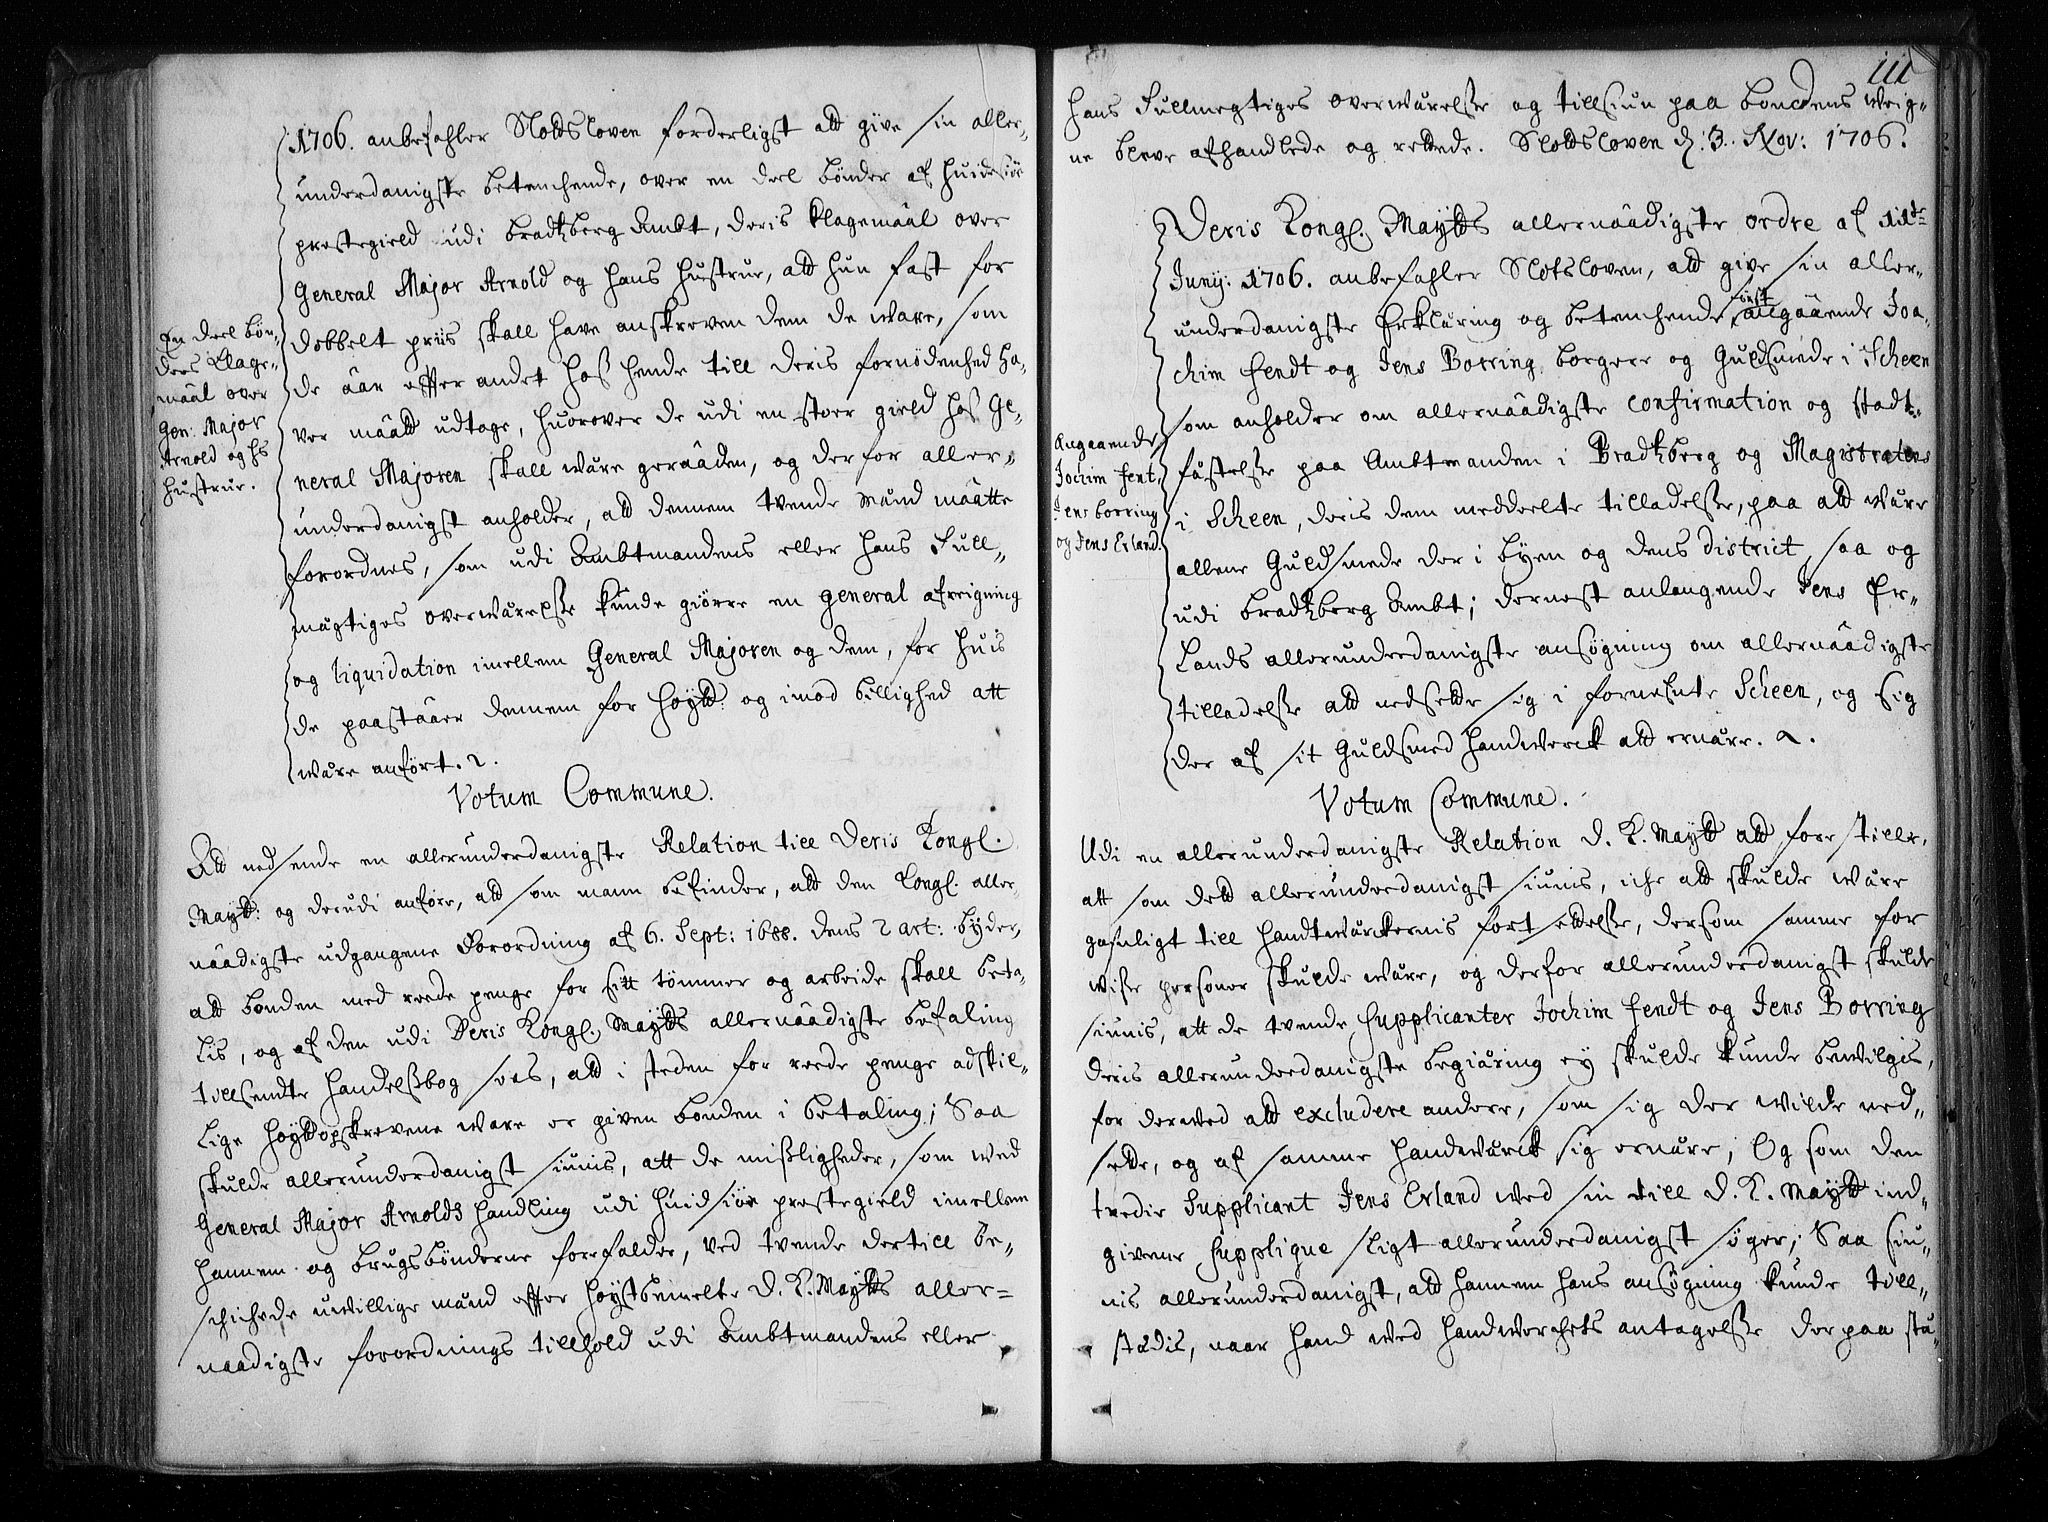 1706. anbefahler Slottsloven forderligst att give sin aller-
underdanigste betenchende, over en deel bønder af Huidesiøe
prestegield udi Bradtzberg Ambt, deris Klagemaal over
General Major Arnold og hans hustrue, att hun fast for
dobbelt priis skall have anskreven dem de ware, som
de aar effter andet hoß hende till deris fornødenhed ha-
ver maatt udtage, huorover de udi en stoer gield hoß Ge-
neral Majoren skall wære geraaden, og derfor aller-
underdanigst anholder, att dennem tvende mænd maatte
forordnes, som udi Ambtmandens eller hans Full-
mægtiges overwærelse kunde giørre en general afreigning
og liquidation imellem General Majoren og dem, for huis
de paastaaer dennem for høyt og imod billighed att
være anført. 2.
En deel bøn-
ders Klage-
maal over
Gen: Major
Arnold og hs
hustrue.
Votum Commune.
Att nedsende en allerunderdanigste Relation till Deris Kongl.
Maytt: og derudi anføre, att som mann befinder, att den Kongl. aller-
naadigste udgangene Forordning af 6. Sept: 1688. dens 2 art: byder,
att bonden med reede penge for sitt tømmer og arbeide skall beta-
lis, og af den udi Deris Kongl. Maytts allernaadigste befaling
tillsendte handelßbog sees, att i steden for reede penge adskil-
lige høyt opskrevene ware er given bonden i betaling; Saa
skulde allerunderdanigst siunis, att de mißligheder, som wed
General Major Arnolds handling udi Huidsiøe prestegield imellem
hannem og brugsbønderne forefalder, ved tvende dertill be-
schichede uwillige mænd effter høystbemelte D. K. Maytts aller-
naadigste forordnings tillhold udi Ambtmandens eller
111
hans Fullmegtiges overwærelse og tillsiun paa bondens weig-
ne bleve afhandlede og rettede. Slottsloven d: 3. Nov: 1706.
Deris Kongl. Maytts allernaadigste ordre af 11te
Juny: 1706. anbefahler Slotsloven, att give sin aller-
underdanigste Erklæring og betenchende først angaaende Joa-
chim Fendt og Jens Borring borgere og Guldsmede i Scheen
som anholder om allernaadigste confirmation og stadt-
fæstelse paa Ambtmanden i Bradtzberg og Magistratens
i Scheen, deris dem meddeelte tilladelse, paa att wære
allene Guldsmede der i byen og dens district, saa og
udi Bradtzberg Ambt; dernest anlangende Jens Er-
lands allerunderdanigste ansøgning om allernaadigste
tilladelse att nedsette sig i fornefnte Scheen, og sig
der af sit Guldsmed handwerck att ernære. a.
Angaaende
Jochim Fent,
Jens Borring
og Jens Erland.
Votum Commune.
Udi en allerunderdanigste Relation D. K. Maytt att forestille,
att som dett allerunderdanigst siunis, iche att skulde wære
gafnligt till handtwærckernis fortsettelse, dersom samme for
wisse personer skulde wære, og derfor allerunderdanigst skulde
siunis, att de tvende Supplicanter Jochim Fendt og Jens Borring
deris allerunderdanigste begiæring ey skulde kunde bewilgis,
for derwed att excludere andere, som sig der wilde ned-
sette, og af samme handwærck sig ernære; Og som den
tredie Supplicant Jens Erland wed sin till D. K. Maytt ind-
givene Supplique sligt allerunderdanigst søger; Saa siu-
nis allerunderdanigst, att hannem hans ansøgning kunde till-
stædis, naar hand wed handwerchets antagelse der paa stæ-